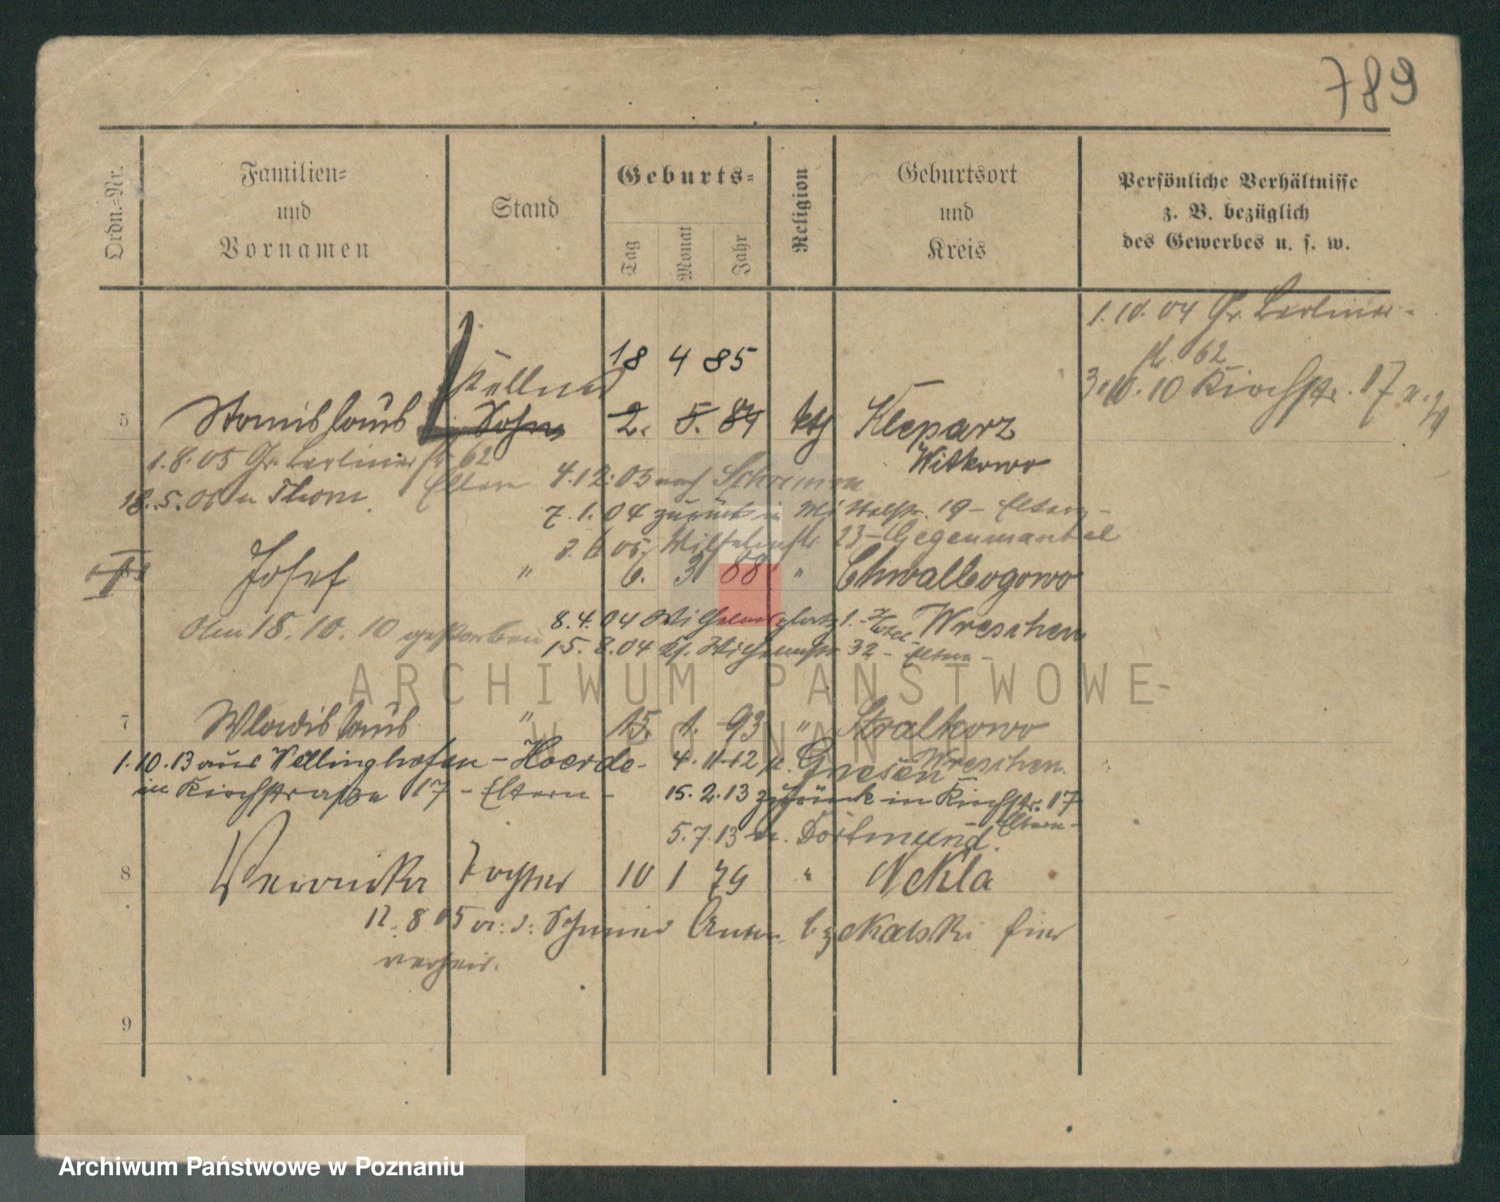 789
Ordn.-Nr.
Familien=
und
Vornamen
Stand
Geburts=
Tag
Monat
Jahr
Religion
Geburtsort
und
Kreis
Persönliche Verhältnisse
z. B. bezüglich
des Gewerbes u. s. w.
1.10.04 Gr. Berliner-
str. 62
3.10.10 Kirchstr. 17
18 4 85
Kellner
5 Stanislaus Sohn 2. 5. 84 kth Kleparz
Witkowo
1.8.05 Gr. Berliner str 62
Eltern
4.12.03 nach Schrimm
18.5.06 n Thorn.
7.1.04 zurück in Mittelstr. 19 - Eltern -
2.6.05. Wilhelmstr. 23 - Gegenmantel
Josef " 6. 3 88 " Chwalbogowo
Wreschen
8.4.04 Wilhelmsplatz 1.
Am 18.10.10 gestorben
15.8.04 Kl. Wilhelmstr. 32 - Eltern -
7 Wladislaus " 15. 1. 93 " Stralkowo
Wreschen
1.10.13 aus Wellinghofen - Hoerde -
4.11.12 n. Gnesen
in Kirchstraße 17 - Eltern -
15.2.13 zurück in Kirchstr. 17
- Eltern -
5.7.13 n. Dortmund.
8 Veronika Tochter 10 1 79 " Nekla
12.8 05 m. d. Schmied Anton hier
verheir.
9
ARCHIWUM PAŃSTWOWE
W POZNANIU
Archiwum Państwowe w Poznaniu